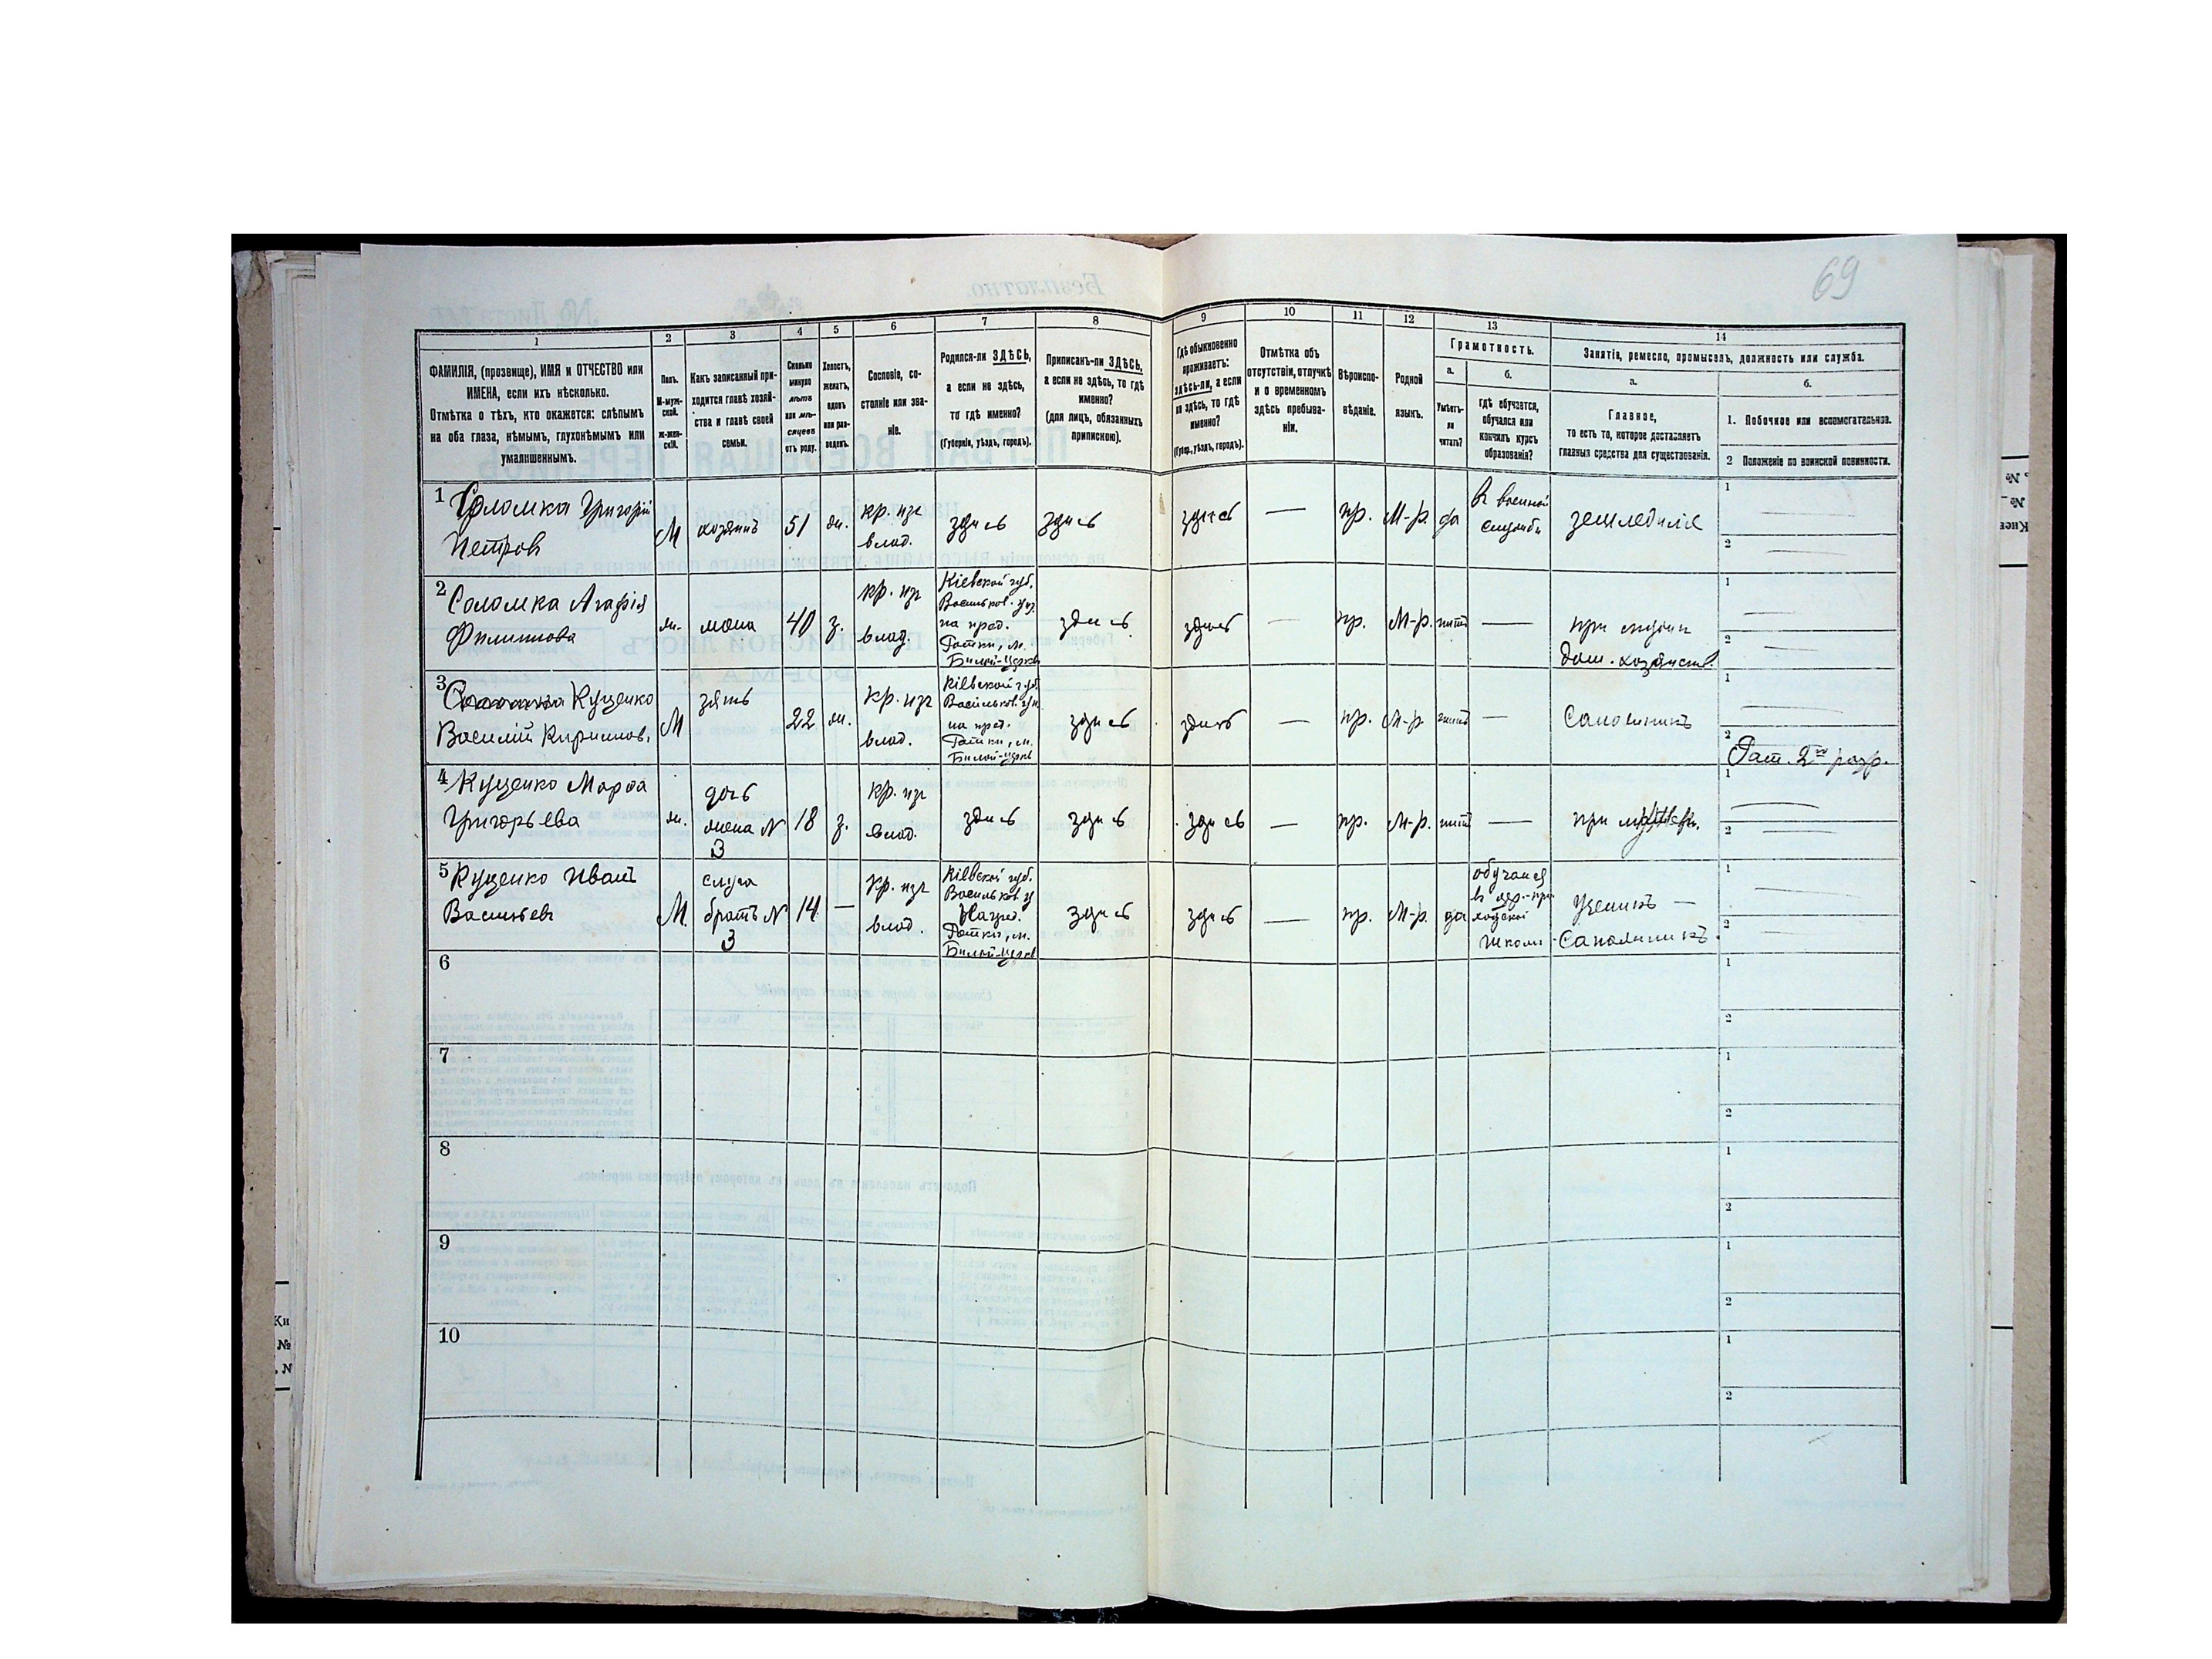 69
1 2 3 4 5 6 7 8 9 10 11 12 13 14
ФАМИЛІЯ, (прозвище), ИМЯ и ОТЧЕСТВО или
ИМЕНА, если ихъ нѣсколько.
Отмѣтка о тѣхъ, кто окажется: слѣпымъ
на оба глаза, нѣмымъ, глухонѣмымъ или
умалишеннымъ.
Полъ.
М-муж-
ской.
Ж-жен-
скій.
Какъ записанный при-
ходится главѣ хозяй-
ства и главѣ своей
семьи.
Сколько
минуло
лѣтъ
или мѣ-
сяцевъ
отъ роду.
Холостъ,
женатъ,
вдовъ
или раз-
веденъ.
Сословіе, со-
стояніе или зва-
ніе.
Родился-ли ЗДѢСЬ,
а если не здѣсь,
то гдѣ именно?
(Губернія, уѣздъ, городъ).
Приписанъ-ли ЗДѢСЬ,
а если не здѣсь, то гдѣ
именно?
(для лицъ, обязанныхъ
припискою).
Гдѣ обыкновенно
проживаетъ:
здѣсь-ли, а если
не здѣсь, то гдѣ
именно?
(Губер., уѣздъ, городъ).
Отмѣтка объ
отсутствіи, отлучкѣ
и о временномъ
здѣсь пребыва-
ніи.
Вѣроиспо-
вѣданіе.
Родной
языкъ.
Грамотность.
а.
Умѣетъ-
ли
читать?
б.
гдѣ обучается,
обучался или
кончилъ курсъ
образованія?
Занятіе, ремесло, промыселъ, должность или служба.
а.
Главное,
то есть то, которое доставляетъ
главныя средства для существованія.
б.
1. Побочное или вспомогательное.
2 Положеніе по воинской повинности.
1 Соломка Григорій
Петровъ
М
хозяинъ
51
ж.
кр. изъ
влад.
здись
здись
здись
—
пр.
М-р.
да
въ военной
службѣ
земледѣліе
1 —
2 —
2 Соломка Агафія
Филипова
ж.
жена
40
з.
кр. изъ
влад.
Кіевской губ.
Васильков. у.
на пред.
Ротки, м.
Билой-Церкв
здись
здись
—
пр.
М-р.
нитъ
—
при
дом. хозяйств.
1 —
2 —
3 Кущенко
Василій Кирилов.
М
зять
22
ж.
кр. изъ
влад.
Кіевской губ.
Васильков. у.
на пред.
Ротки, м.
Билой-Церкв
здись
здись
—
пр.
М-р.
нитъ
—
Сапожникъ
1 —
2 Рат. 2го разр.
4 Кущенко Марѳа
Григорьева
ж.
дочь
жена №
3
18
з.
кр. изъ
влад.
здись
здись
здись
—
пр.
М-р.
нитъ
—
при
1 —
2 —
5 Кущенко Иванъ
Васильевъ
М.
слуга
братъ №
3
14
—
кр. изъ
влад.
Кіевской губ.
Васильков. у
На пред.
Ротки, м.
Билой-Церкв
здись
здись
—
пр.
М-р.
да
обучался
въ цер.-при
ходской
школи
Ученикъ —
Сапожникъ.
1 —
2 —
6 1
2
7 1
2
8 1
2
9 1
2
10 1
2